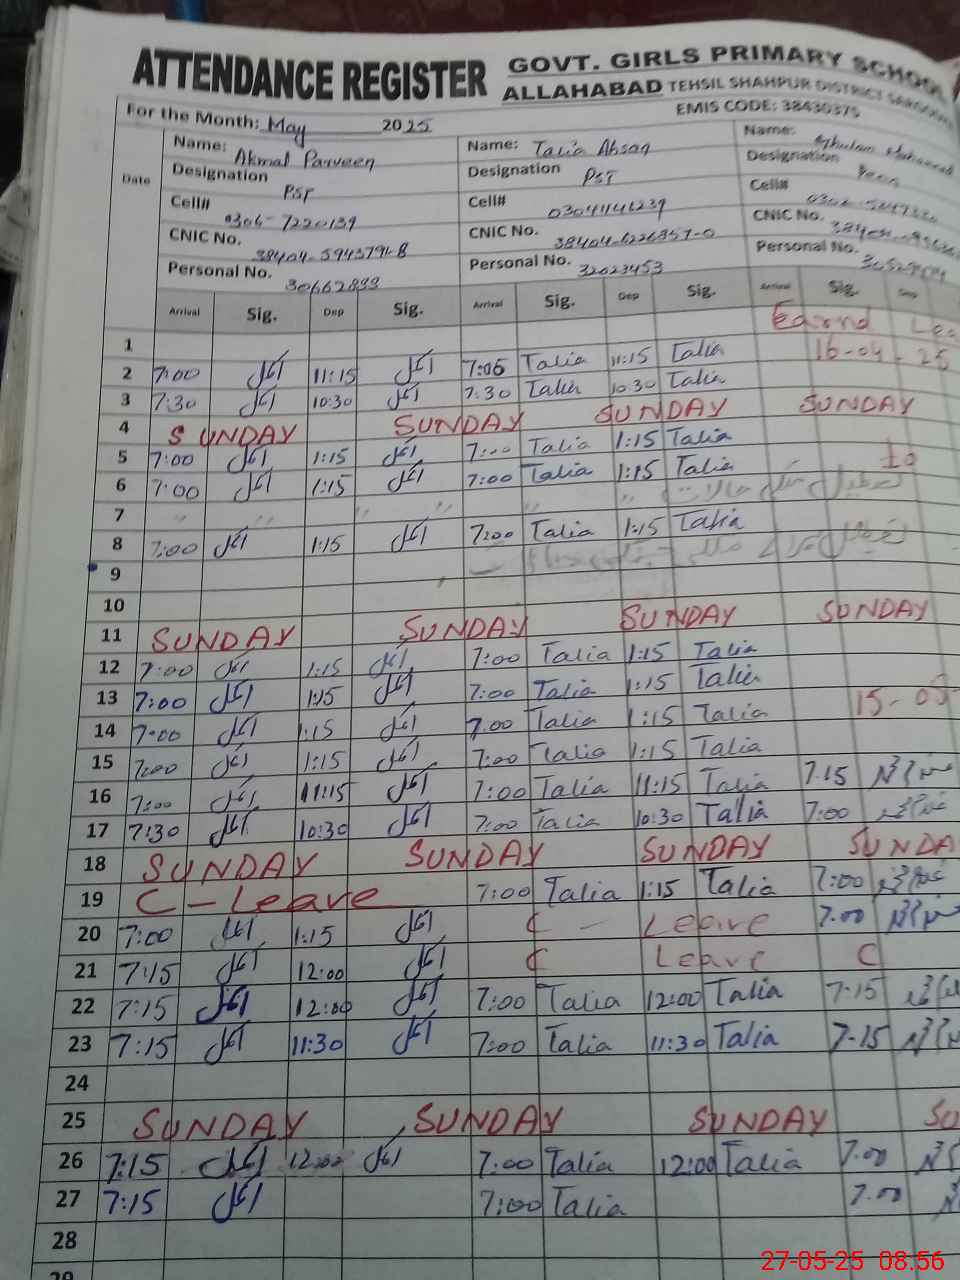 ATTENDANCE REGISTER GOVT. GIRLS PRIMARY SCHOOL
ALLAHABAD TEHSIL SHAHPUR DISTRICT
EMIS CODE: 38430375
For the Month: May 2025
Date
Name: Akmal Parveen Name: Talia Ahsan Name:
Designation PST Designation PST Designation
Cell# 0306-7220139 Cell# 03041146239 Cell#
CNIC No. CNIC No. CNIC No.
Personal No. Personal No. 32023453 Personal No.
Arrival Sig. Dep Sig. Arrival Sig. Dep Sig. Arrival Sig. Dep
1
2 7:00 اکمل 11:15 اکمل 7:05 Talia 11:15 Talia 16-04-25
3 7:30 اکمل 10:30 اکمل 7:30 Talia 10:30 Talia
4 SUNDAY SUNDAY SUNDAY SUNDAY
5 7:00 اکمل 1:15 اکمل 7:00 Talia 1:15 Talia to
6 7:00 اکمل 1:15 اکمل 7:00 Talia 1:15 Talia
7 " " " " " "
8 7:00 اکمل 1:15 اکمل 7:00 Talia 1:15 Talia
9
10
11 SUNDAY SUNDAY SUNDAY SUNDAY
12 7:00 اکمل 1:15 اکمل 7:00 Talia 1:15 Talia
13 7:00 اکمل 1:15 اکمل 7:00 Talia 1:15 Talia 15-05
14 7:00 اکمل 1:15 اکمل 7:00 Talia 1:15 Talia
15 7:00 اکمل 1:15 اکمل 7:00 Talia 1:15 Talia
16 7:00 اکمل 11:15 اکمل 7:00 Talia 11:15 Talia 7:15
17 7:30 اکمل 10:30 اکمل 7:00 Talia 10:30 Talia 7:00
18 SUNDAY SUNDAY SUNDAY SUNDA
19 C-Leave 7:00 Talia 1:15 Talia 7:00
20 7:00 اکمل 1:15 اکمل C - Leave 7:00
21 7:15 اکمل 12:00 اکمل C Leave C
22 7:15 اکمل 12:00 اکمل 7:00 Talia 12:00 Talia 7:15
23 7:15 اکمل 11:30 اکمل 7:00 Talia 11:30 Talia 7-15
24
25 SUNDAY SUNDAY SUNDAY SU
26 7:15 اکمل 12:00 اکمل 7:00 Talia 12:00 Talia 7:00
27 7:15 اکمل 7:00 Talia 7:00
28
29
27-05-25 08:56